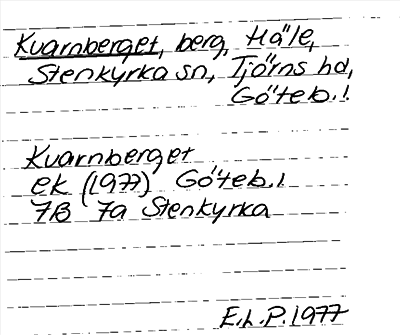 Kvarnberget, berg, Häle,
Stenkyrka sn, Tjörns hd,
Göteb. l.
Kvarnberget
ek (1977) Göteb. l
7B 7a Stenkyrka
E.L.P. 1977